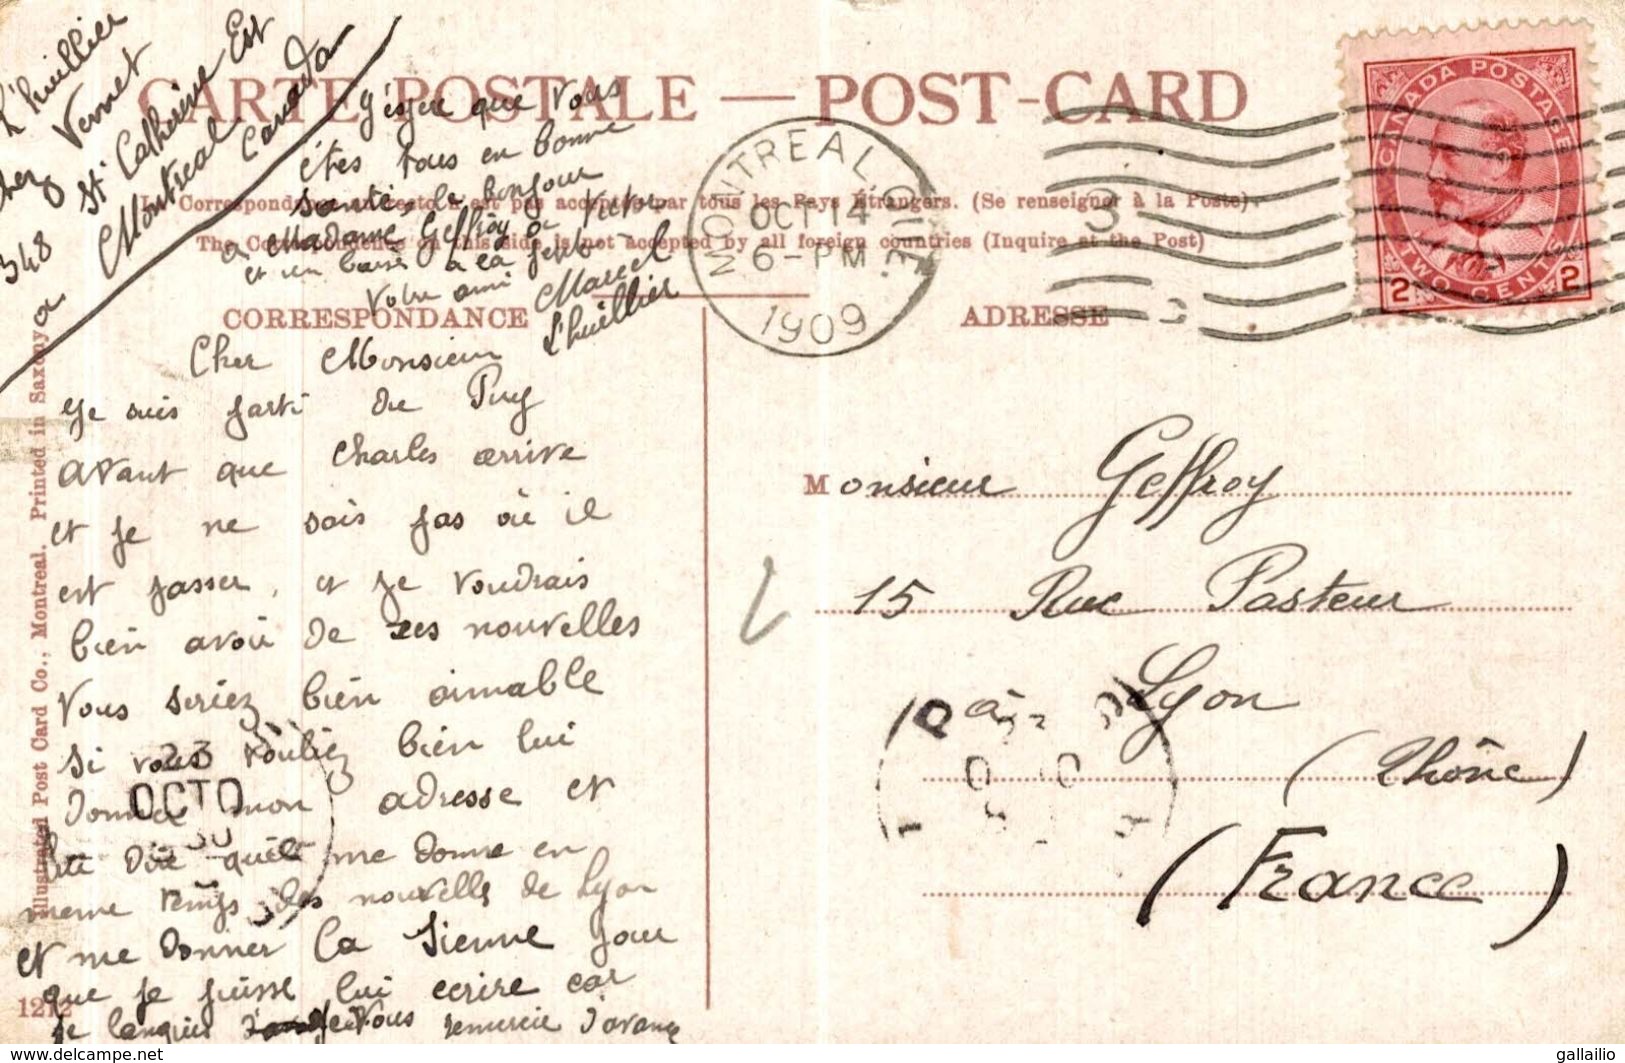 L'huillier
chez Vernet
348 St Catherine Est
a Montreal
Canada
CARTE POSTALE — POST-CARD
La Correspondance au recto n'est pas acceptée par tous les Pays Étrangers. (Se renseigner à la Poste).
The Correspondence on this side is not accepted by all foreign countries (Inquire at the Post)
CORRESPONDANCE
ADRESSE
MONTREAL QUE.
OCT 14
6-PM
1909
3
CANADA POSTAGE
2 TWO CENTS 2
Cher Monsieur
Je suis parti du Puy
avant que Charles arrive
et je ne sais pas où il
est passer, et je voudrais
bien avoir de ses nouvelles
Vous seriez bien aimable
si vous vouliez bien lui
donner mon adresse et
lui dire qu'il me donne en
meme temps des nouvelles de Lyon
et me donner la sienne pour
que je puisse lui ecrire car
je languis Vous remercie d'avance
j'espère que vous
êtes tous en bonne
santé, le bonjour
a Madame Geffroy a Victor
et un baiser a la
Votre ami
Marcel
L'huillier
Monsieur Geffroy
15 Rue Pasteur
à Lyon
(Rhône)
(France)
23
OCTO
30
Illustrated Post Card Co., Montreal. Printed in Saxony
1212
www.delcampe.net
gallailio